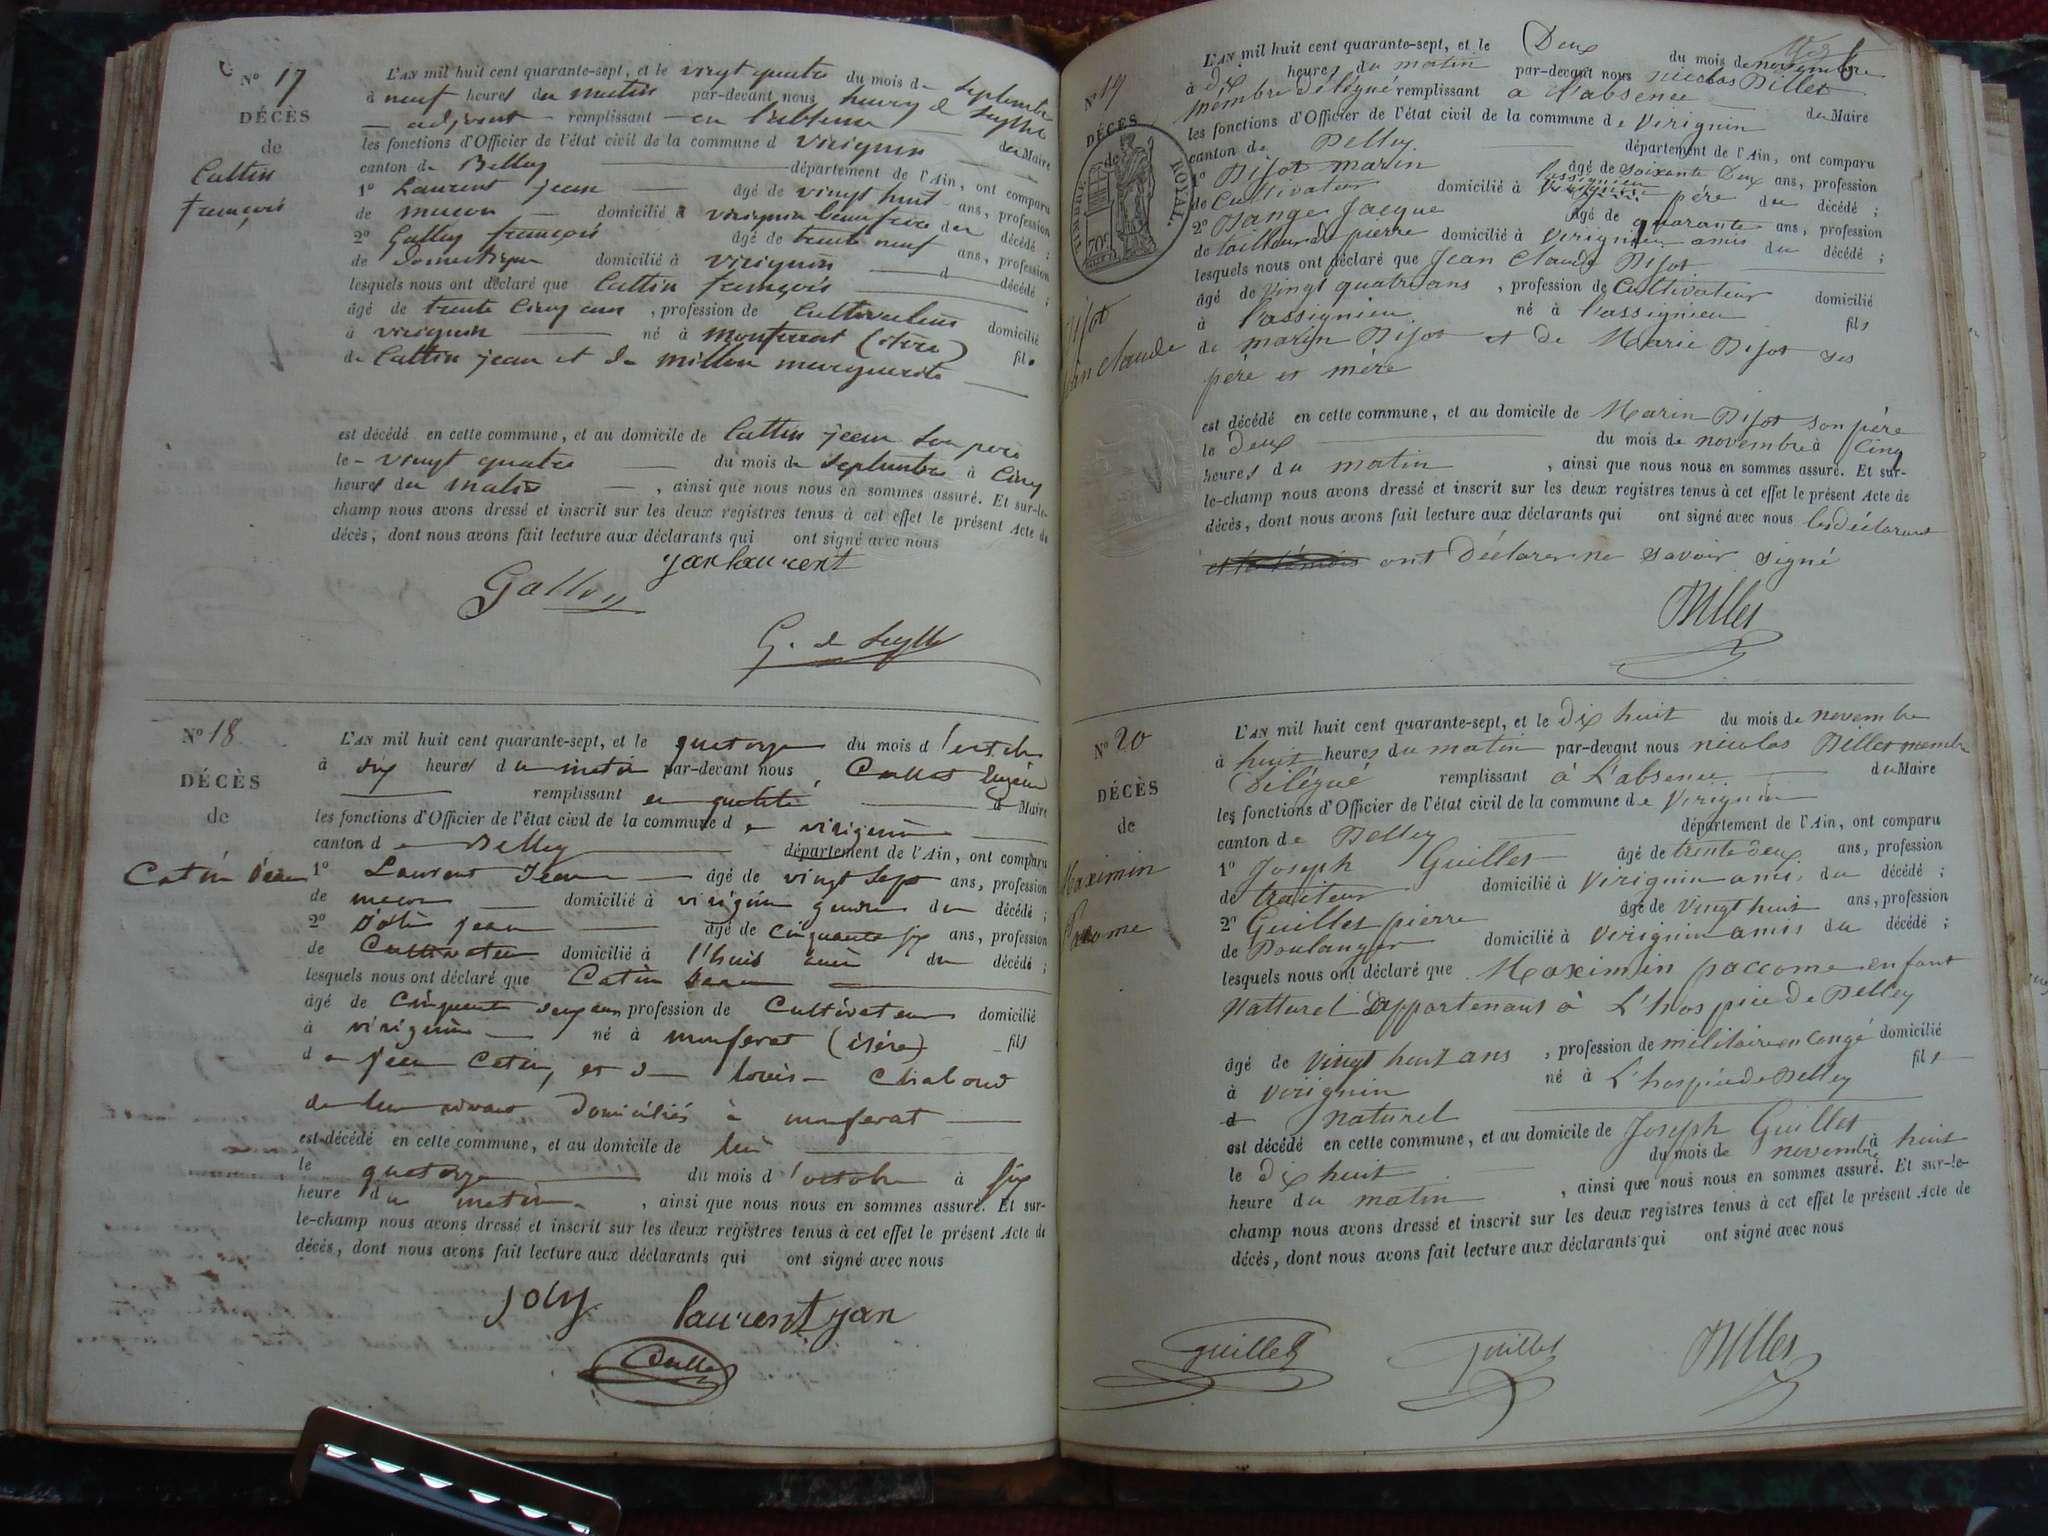 N° 17
DÉCÈS
de
Cattin
françois
L'AN mil huit cent quarante-sept, et le vingt quatre du mois de septembre
à neuf heures du matin par-devant nous henry de Seyssel
adjoint remplissant en l'absence du Maire
les fonctions d'Officier de l'état civil de la commune d virignin
canton de Belley département de l'Ain, ont comparu
1° Laurent jean âgé de vingt huit ans, profession
de macon domicilié à virignin beaufrère du décédé ;
2° Galley françois âgé de trente neuf ans, profession
de Domestique domicilié à virignin d décédé ;
lesquels nous ont déclaré que Cattin françois
âgé de trente cinq ans, profession de Cultivateur domicilié
à virignin né à montferrat (isère) fils
de Cattin jean et de millon marguerite
est décédé en cette commune, et au domicile de Cattin jean son père
le vingt quatre du mois de septembre à cinq
heures du matin, ainsi que nous nous en sommes assuré. Et sur-le-
champ nous avons dressé et inscrit sur les deux registres tenus à cet effet le présent Acte de
décès, dont nous avons fait lecture aux déclarants qui ont signé avec nous
jean laurent
Galley
N° 18
DÉCÈS
de
Catin Jean
L'AN mil huit cent quarante-sept, et le quatorze du mois d'octobre
à dix heures du matin par-devant nous, Cullet Eugène
remplissant en qualité d Maire
les fonctions d'Officier de l'état civil de la commune de virignin
canton de Belley département de l'Ain, ont comparu
1° Laurent Jean âgé de vingt sept ans, profession
de macon domicilié à virignin gendre du décédé ;
2° jean âgé de cinquante six ans, profession
de Cultivateur domicilié à l'huis du décédé ;
lesquels nous ont déclaré que Catin Jean
âgé de cinquante deux ans profession de Cultivateur domicilié
à virignin né à monferat (isère) fils
de jean Catin, et de louise Chaboud
de leur vivant domiciliés à monferat
est décédé en cette commune, et au domicile de lui
le quatorze du mois d'octobre à six
heure du matin, ainsi que nous nous en sommes assuré. Et sur-
le-champ nous avons dressé et inscrit sur les deux registres tenus à cet effet le présent Acte de
décès, dont nous avons fait lecture aux déclarants qui ont signé avec nous
joly laurent jan
Cullet
N° 19
DÉCÈS
de
TIMBRE ROYAL
70c
Dijot
Jean Claude
L'AN mil huit cent quarante-sept, et le Deux du mois de novembre
à dix heures du matin par-devant nous nicolas Billet
membre délégué remplissant à l'absence du Maire
les fonctions d'Officier de l'état civil de la commune de Virignin
canton de Belley département de l'Ain, ont comparu
1° Dijot marin âgé de soixante Deux ans, profession
de Cultivateur domicilié à lassignieu père du décédé ;
2° Dange Jacque âgé de quarante ans, profession
de tailleur de pierre domicilié à virignin amis du décédé ;
lesquels nous ont déclaré que Jean Claude Dijot
âgé de vingt quatre ans, profession de Cultivateur domicilié
à lassignieu né à lassignieu fils
de marin Dijot et de Marie Dijot ses
père et mère
est décédé en cette commune, et au domicile de Marin Dijot son père
le deux du mois de novembre à cinq
heures du matin, ainsi que nous nous en sommes assuré. Et sur-
le-champ nous avons dressé et inscrit sur les deux registres tenus à cet effet le présent Acte de
décès, dont nous avons fait lecture aux déclarants qui ont signé avec nous les déclarant
ont Déclarer ne savoir signé
Billet
N° 20
DÉCÈS
de
Maximin
Pacome
L'AN mil huit cent quarante-sept, et le dix huit du mois de novembre
à huit heures du matin par-devant nous nicolas Billet membre
Délégué remplissant à L'absence du Maire
les fonctions d'Officier de l'état civil de la commune de Virignin
canton de Belley département de l'Ain, ont comparu
1° Joseph Guillet âgé de trente deux ans, profession
de traiteur domicilié à Virignin amis du décédé ;
2° Guillet pierre âgé de vingt huit ans, profession
de Boulanger domicilié à Virignin amis du décédé ;
lesquels nous ont déclaré que Maximin paccome enfant
Natturel appartenant à L'hospice de Belley
âgé de vingt huit ans, profession de militaire en congé domicilié
à virignin né à L'hospice de Belley fils
d naturel
est décédé en cette commune, et au domicile de Joseph Guillet
le dix huit du mois de novembre à huit
heure du matin, ainsi que nous nous en sommes assuré. Et sur-le-
champ nous avons dressé et inscrit sur les deux registres tenus à cet effet le présent Acte de
décès, dont nous avons fait lecture aux déclarants qui ont signé avec nous
Guillet Guillet Billet